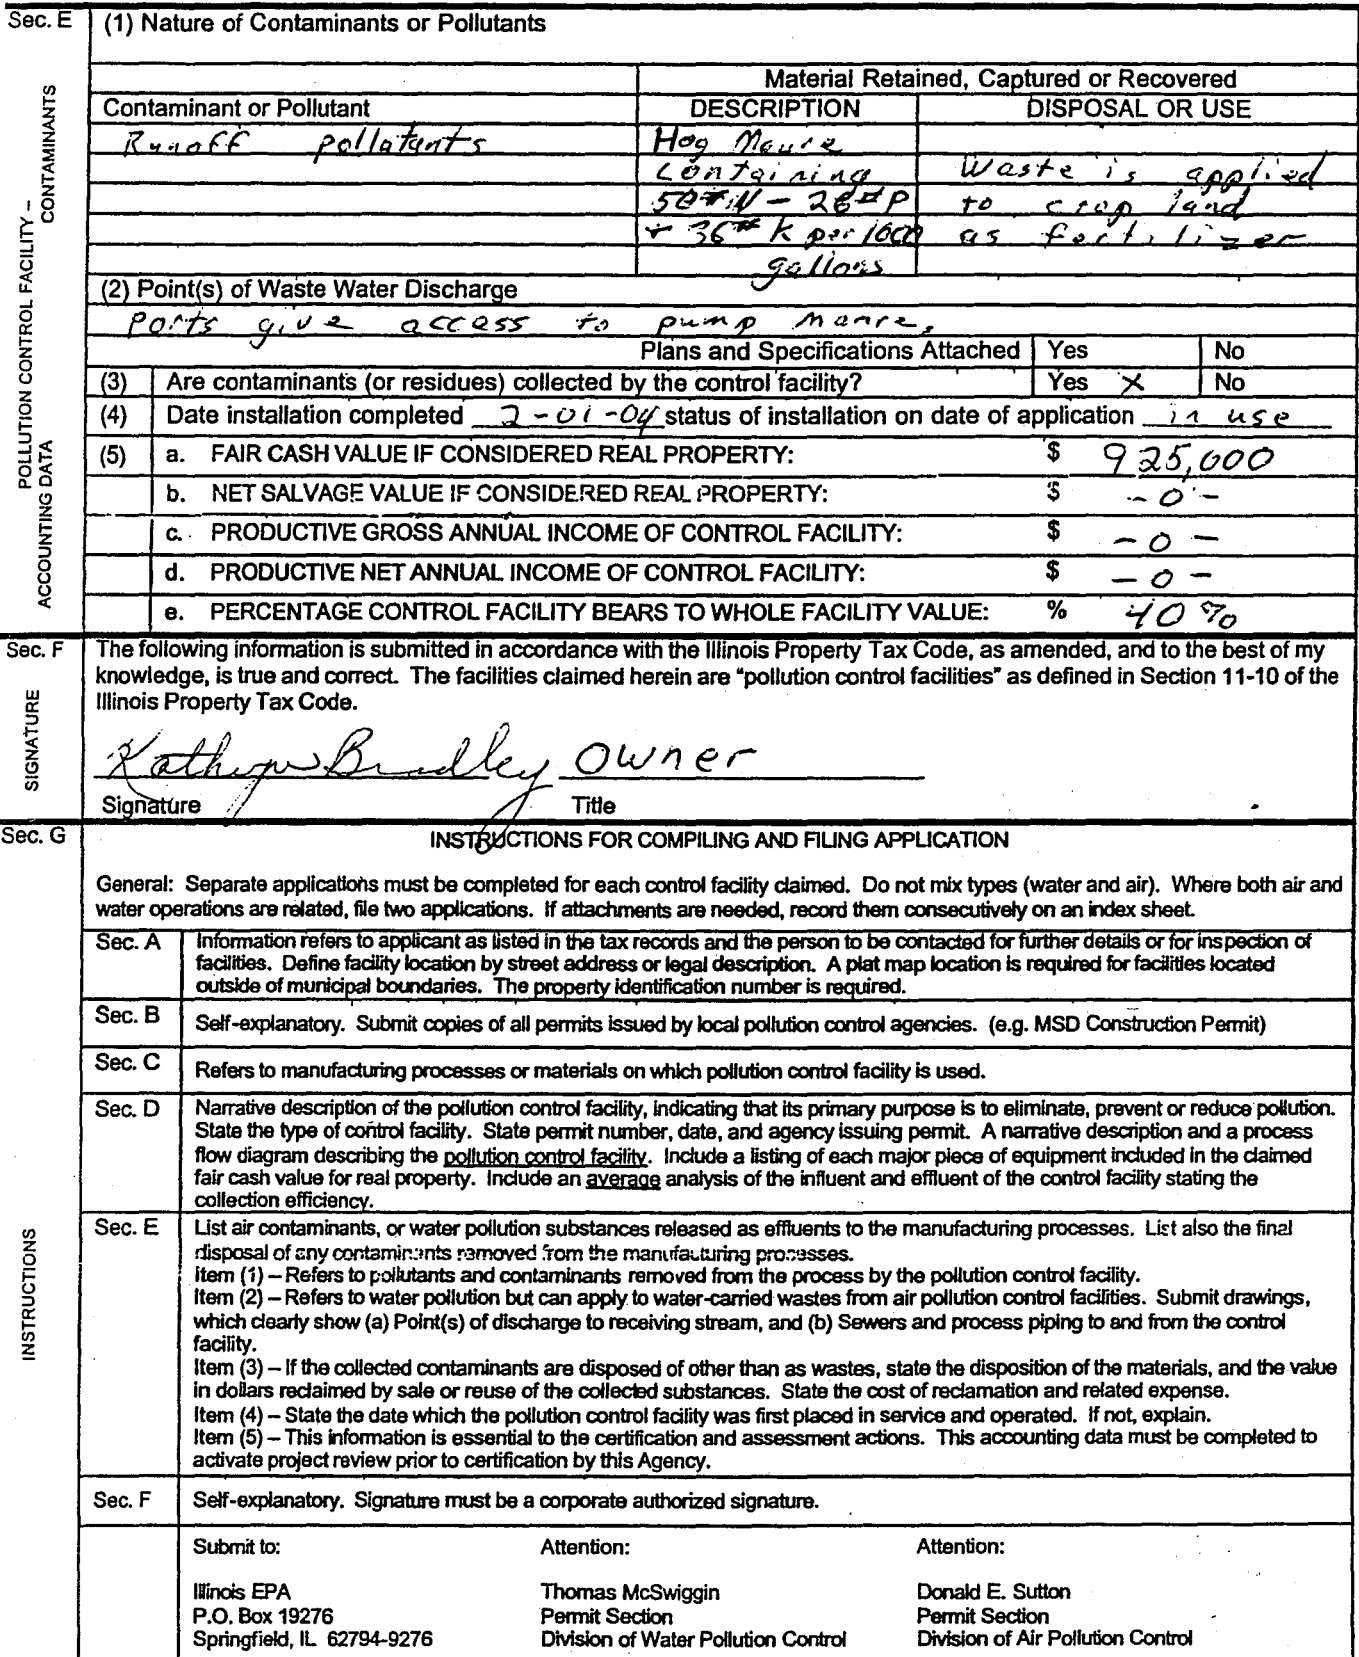 Sec. E
(1) Nature of Contaminants or Pollutants
Material Retained, Captured or Recovered
Contaminant or Pollutant DESCRIPTION DISPOSAL OR USE
Runoff pollutants Hog Maure
Containing Waste is applied
50# N - 26# P to crop land
+ 36# K per 1000 as fertilizer
gallons
(2) Point(s) of Waste Water Discharge
Ports give access to pump manre.
Plans and Specifications Attached Yes No
(3) Are contaminants (or residues) collected by the control facility? Yes X No
(4) Date installation completed 2-01-04 status of installation on date of application in use
(5) a. FAIR CASH VALUE IF CONSIDERED REAL PROPERTY: $ 925,000
b. NET SALVAGE VALUE IF CONSIDERED REAL PROPERTY: $ -0-
c. PRODUCTIVE GROSS ANNUAL INCOME OF CONTROL FACILITY: $ -0-
d. PRODUCTIVE NET ANNUAL INCOME OF CONTROL FACILITY: $ -0-
e. PERCENTAGE CONTROL FACILITY BEARS TO WHOLE FACILITY VALUE: % 40%
POLLUTION CONTROL FACILITY –
CONTAMINANTS
ACCOUNTING DATA
Sec. F
SIGNATURE
The following information is submitted in accordance with the Illinois Property Tax Code, as amended, and to the best of my
knowledge, is true and correct. The facilities claimed herein are "pollution control facilities" as defined in Section 11-10 of the
Illinois Property Tax Code.
Kathryn Bradley Owner
Signature Title
Sec. G
INSTRUCTIONS
INSTRUCTIONS FOR COMPILING AND FILING APPLICATION
General: Separate applications must be completed for each control facility claimed. Do not mix types (water and air). Where both air and
water operations are related, file two applications. If attachments are needed, record them consecutively on an index sheet.
Sec. A Information refers to applicant as listed in the tax records and the person to be contacted for further details or for inspection of
facilities. Define facility location by street address or legal description. A plat map location is required for facilities located
outside of municipal boundaries. The property identification number is required.
Sec. B Self-explanatory. Submit copies of all permits issued by local pollution control agencies. (e.g. MSD Construction Permit)
Sec. C Refers to manufacturing processes or materials on which pollution control facility is used.
Sec. D Narrative description of the pollution control facility, indicating that its primary purpose is to eliminate, prevent or reduce pollution.
State the type of control facility. State permit number, date, and agency issuing permit. A narrative description and a process
flow diagram describing the pollution control facility. Include a listing of each major piece of equipment included in the claimed
fair cash value for real property. Include an average analysis of the influent and effluent of the control facility stating the
collection efficiency.
Sec. E List air contaminants, or water pollution substances released as effluents to the manufacturing processes. List also the final
disposal of any contaminants removed from the manufacturing processes.
Item (1) – Refers to pollutants and contaminants removed from the process by the pollution control facility.
Item (2) – Refers to water pollution but can apply to water-carried wastes from air pollution control facilities. Submit drawings,
which clearly show (a) Point(s) of discharge to receiving stream, and (b) Sewers and process piping to and from the control
facility.
Item (3) – If the collected contaminants are disposed of other than as wastes, state the disposition of the materials, and the value
in dollars reclaimed by sale or reuse of the collected substances. State the cost of reclamation and related expense.
Item (4) – State the date which the pollution control facility was first placed in service and operated. If not, explain.
Item (5) – This information is essential to the certification and assessment actions. This accounting data must be completed to
activate project review prior to certification by this Agency.
Sec. F Self-explanatory. Signature must be a corporate authorized signature.
Submit to: Attention: Attention:
Illinois EPA Thomas McSwiggin Donald E. Sutton
P.O. Box 19276 Permit Section Permit Section
Springfield, IL 62794-9276 Division of Water Pollution Control Division of Air Pollution Control